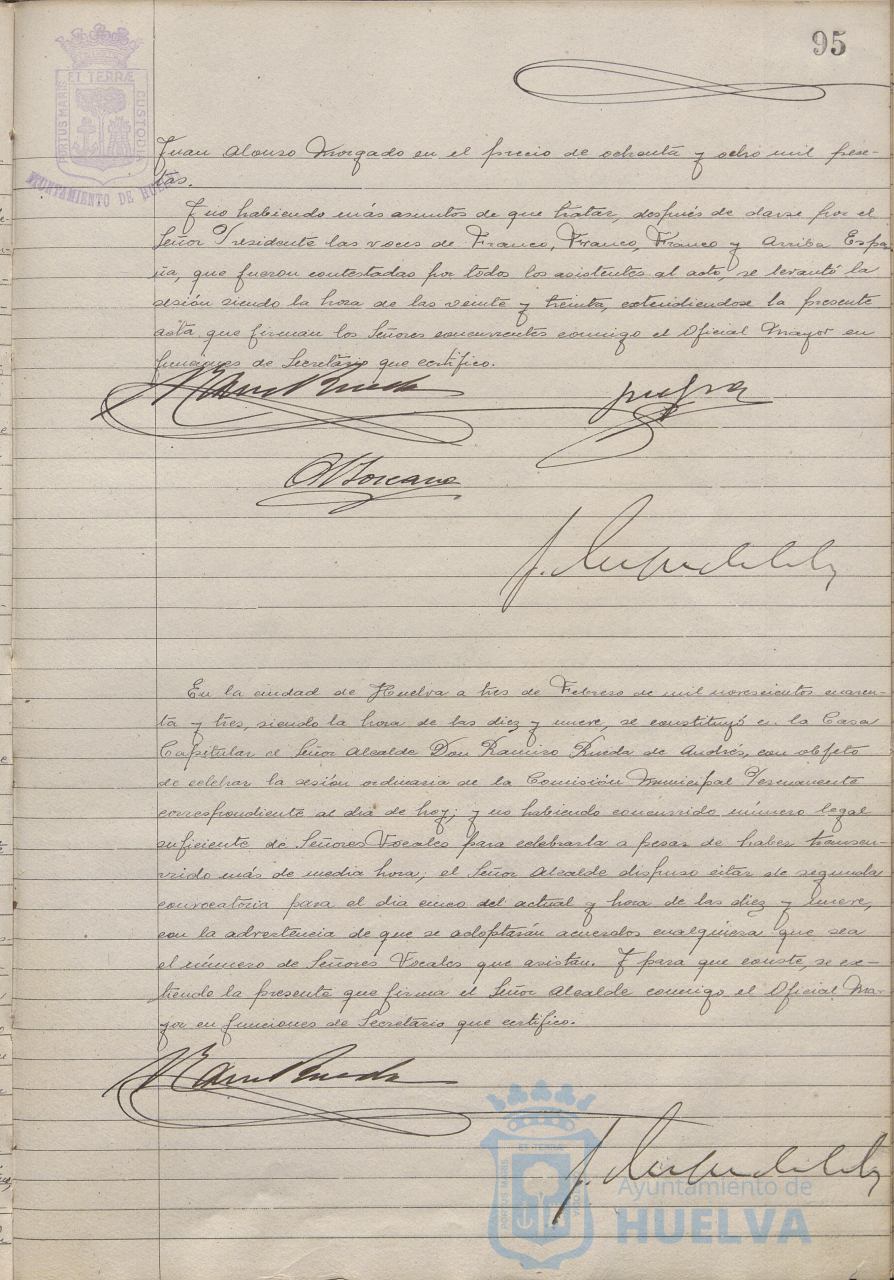 95
PORTUS MARIS ET TERRÆ CUSTODIA
AYUNTAMIENTO DE HUELVA
Juan Alonso Morgado en el precio de ochenta y ocho mil pese-
tas.
Y no habiendo más asuntos de que tratar, después de darse por el
Señor Presidente las voces de Franco, Franco, Franco y Arriba Espa
ña, que fueron contestadas por todos los asistentes al acto, se levantó la
sesión siendo la hora de las veinte y treinta, extendiéndose la presente
acta que firman los Señores concurrentes conmigo el Oficial Mayor en
funciones de Secretario que certifico.
En la ciudad de Huelva a tres de Febrero de mil novescientos cuaren-
ta y tres, siendo la hora de las diez y nueve, se constituyó en la Casa
Capitular el Señor Alcalde Don Ramiro Rueda de Andrés, con objeto
de celebrar la sesión ordinaria de la Comisión Municipal Permanente
correspondiente al día de hoy; y no habiendo concurrido número legal
suficiente de Señores Vocales para celebrarla a pesar de haber transcu-
rrido más de media hora, el Señor Alcalde dispuso citar de segunda
convocatoria para el día cinco del actual y hora de las diez y nueve,
con la advertencia de que se adoptarán acuerdos cualquiera que sea
el número de Señores Vocales que asistan. Y para que conste, se ex-
tiende la presente que firma el Señor Alcalde conmigo el Oficial Ma-
yor en funciones de Secretario que certifico.
PORTUS MARIS ET TERRÆ CUSTODIA
Ayuntamiento de
HUELVA